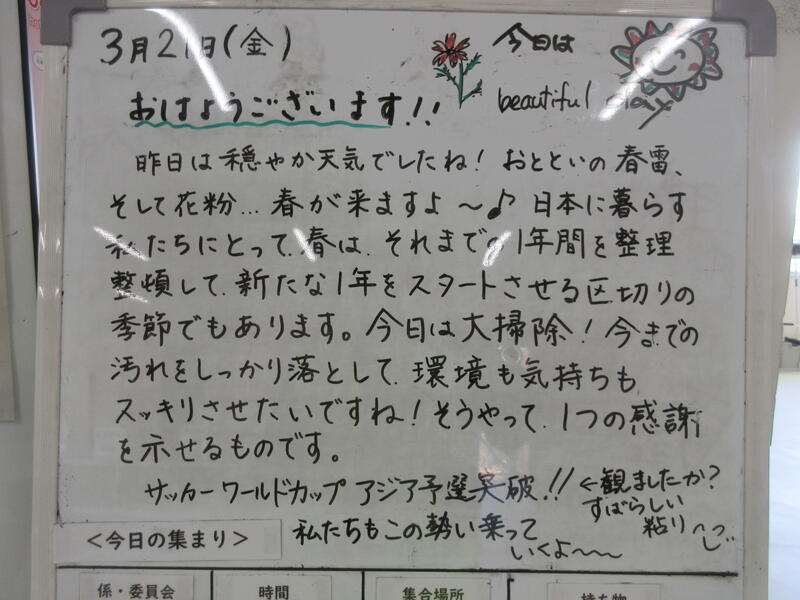 3月21日(金)
今日は
beautiful day
おはようございます!!
昨日は穏やか天気でしたね! おとといの春雷、
そして花粉... 春が来ますよ〜♪ 日本に暮らす
私たちにとって、春は、それまでの1年間を整理
整頓して、新たな1年をスタートさせる区切りの
季節でもあります。今日は大掃除! 今までの
汚れをしっかり落として、環境も気持ちも
スッキリさせたいですね! そうやって、1つの感謝
を示せるものです。
サッカーワールドカップ アジア予選突破!! ←観ましたか?
すばらしい
粘り
私たちもこの勢い乗って
いくよ〜〜
<今日の集まり>
係・委員会 時間 集合場所 持ち物